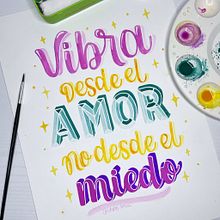 Vibra
desde el
AMOR
no desde el
miedo